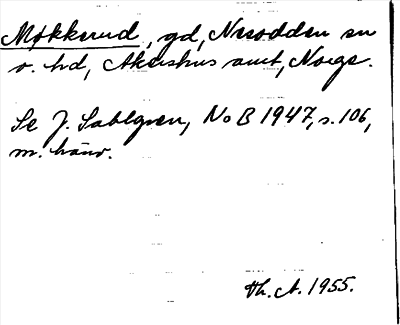 Møkkerud, gd, Nesodden sn
o. hd, Akershus amt, Norge.
Se J. Sahlgren, NoB 1947, s. 106,
m. hänv.
Th. A. 1955.